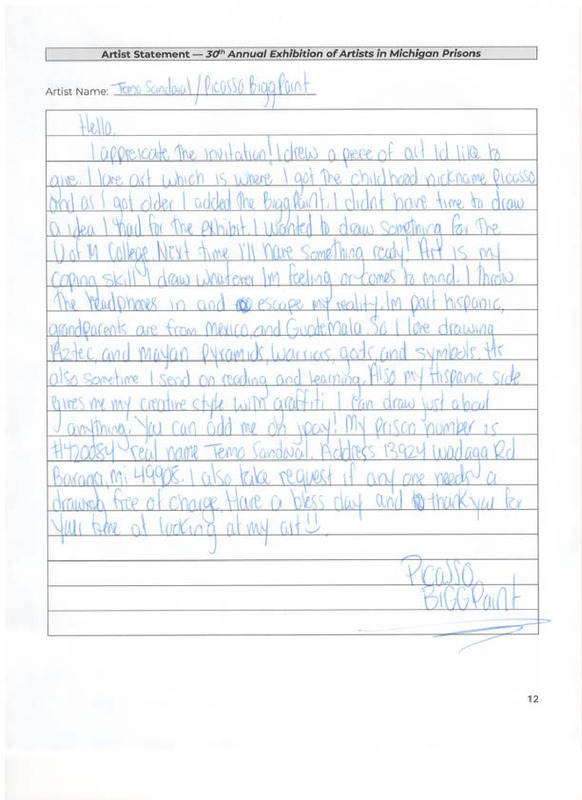 Artist Statement — 30th Annual Exhibition of Artists in Michigan Prisons
Artist Name: Temo Sandoval/Picasso Bigg Paint
Hello,
I appreicate the invitation! I drew a piece of art Id like to
give. I love art which is where I got the childhood nickname Picasso
and as I got older I added the Bigg Paint. I didnt have time to draw
a idea I had for the exhibit. I wanted to draw something for the
U of M College. Next time I'll have something ready! Art is my
coping skill I draw whatever Im feeling or comes to mind. I throw
the headphones in and escape my reality. Im part hispanic,
grandparents are from mexico, and Guatemala. So I love drawing
Aztec, and mayan Pyramids, warriors, gods, and symbols. Its
also sometime I send on reading and learning. Also my Hispanic side
gives me my creative style with graffiti. I can draw just about
anything. You can add me on jpay! My prison number is
#420084 real name Temo Sandoval. Address 13924 Wadaga Rd
Baraga, Mi 49908. I also take request if any one needs a
free of charge. Have a bless day and thank you for
your time at looking at my art
Picasso
BIGG Paint
12